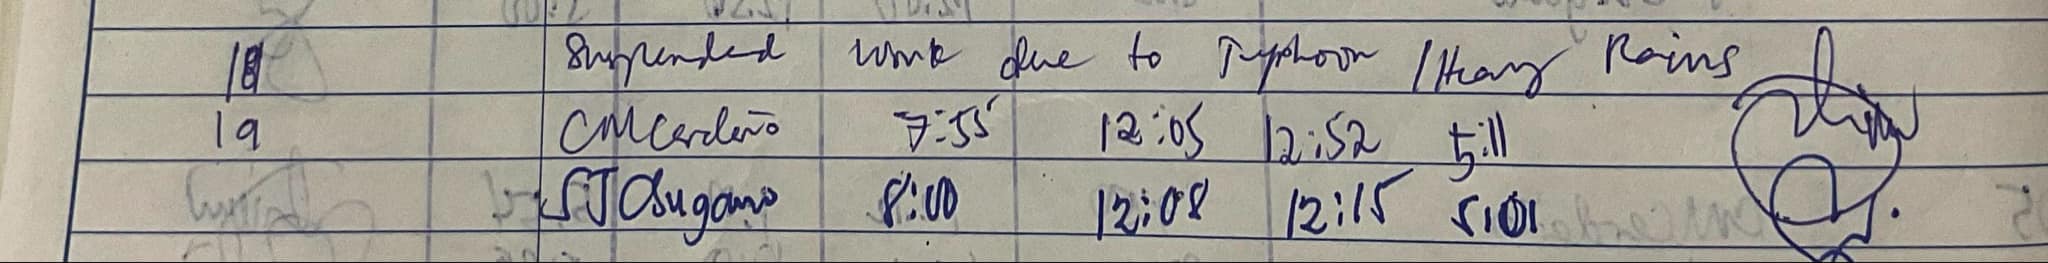 18 Suspended work due to Typhoon / Heavy Rains
19 CMCardeño 7:55 12:05 12:52 5:11
SJOsugano 8:00 12:08 12:15 5:01